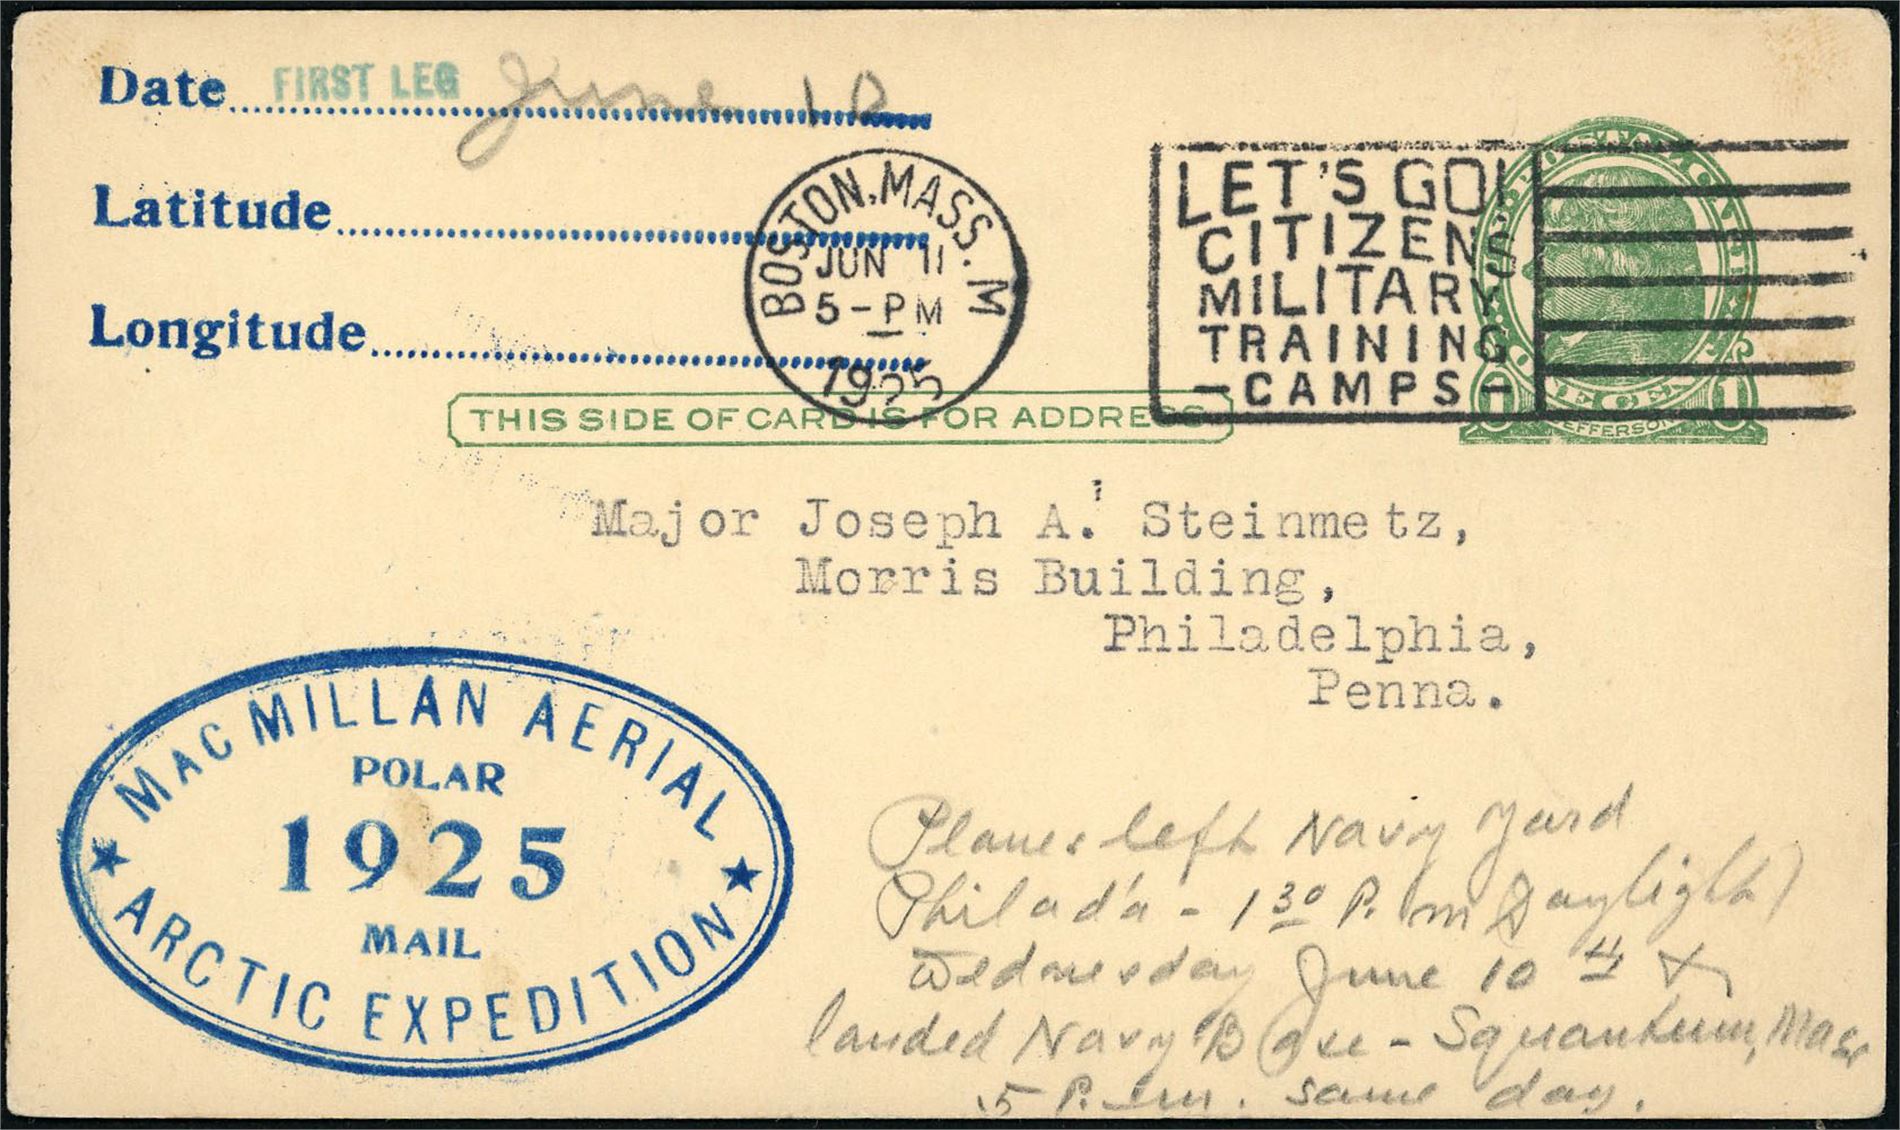 Date FIRST LEG June 10
Latitude
Longitude
BOSTON, MASS. M
JUN 11
5 - PM
1925
LET'S GO!
CITIZENS
MILITARY
TRAINING
- CAMPS -
U.S. POSTAGE
ONE CENT
JEFFERSON
THIS SIDE OF CARD IS FOR ADDRESS
Major Joseph A. Steinmetz,
Morris Building,
Philadelphia,
Penna.
MACMILLAN AERIAL
POLAR
1925
MAIL
★ ARCTIC EXPEDITION ★
Planes left Navy Yard
Philad'a - 1 30 P.m Daylight)
Wednesday June 10 th &
landed Navy Base - Squantum, Mass
5 P.m. same day.